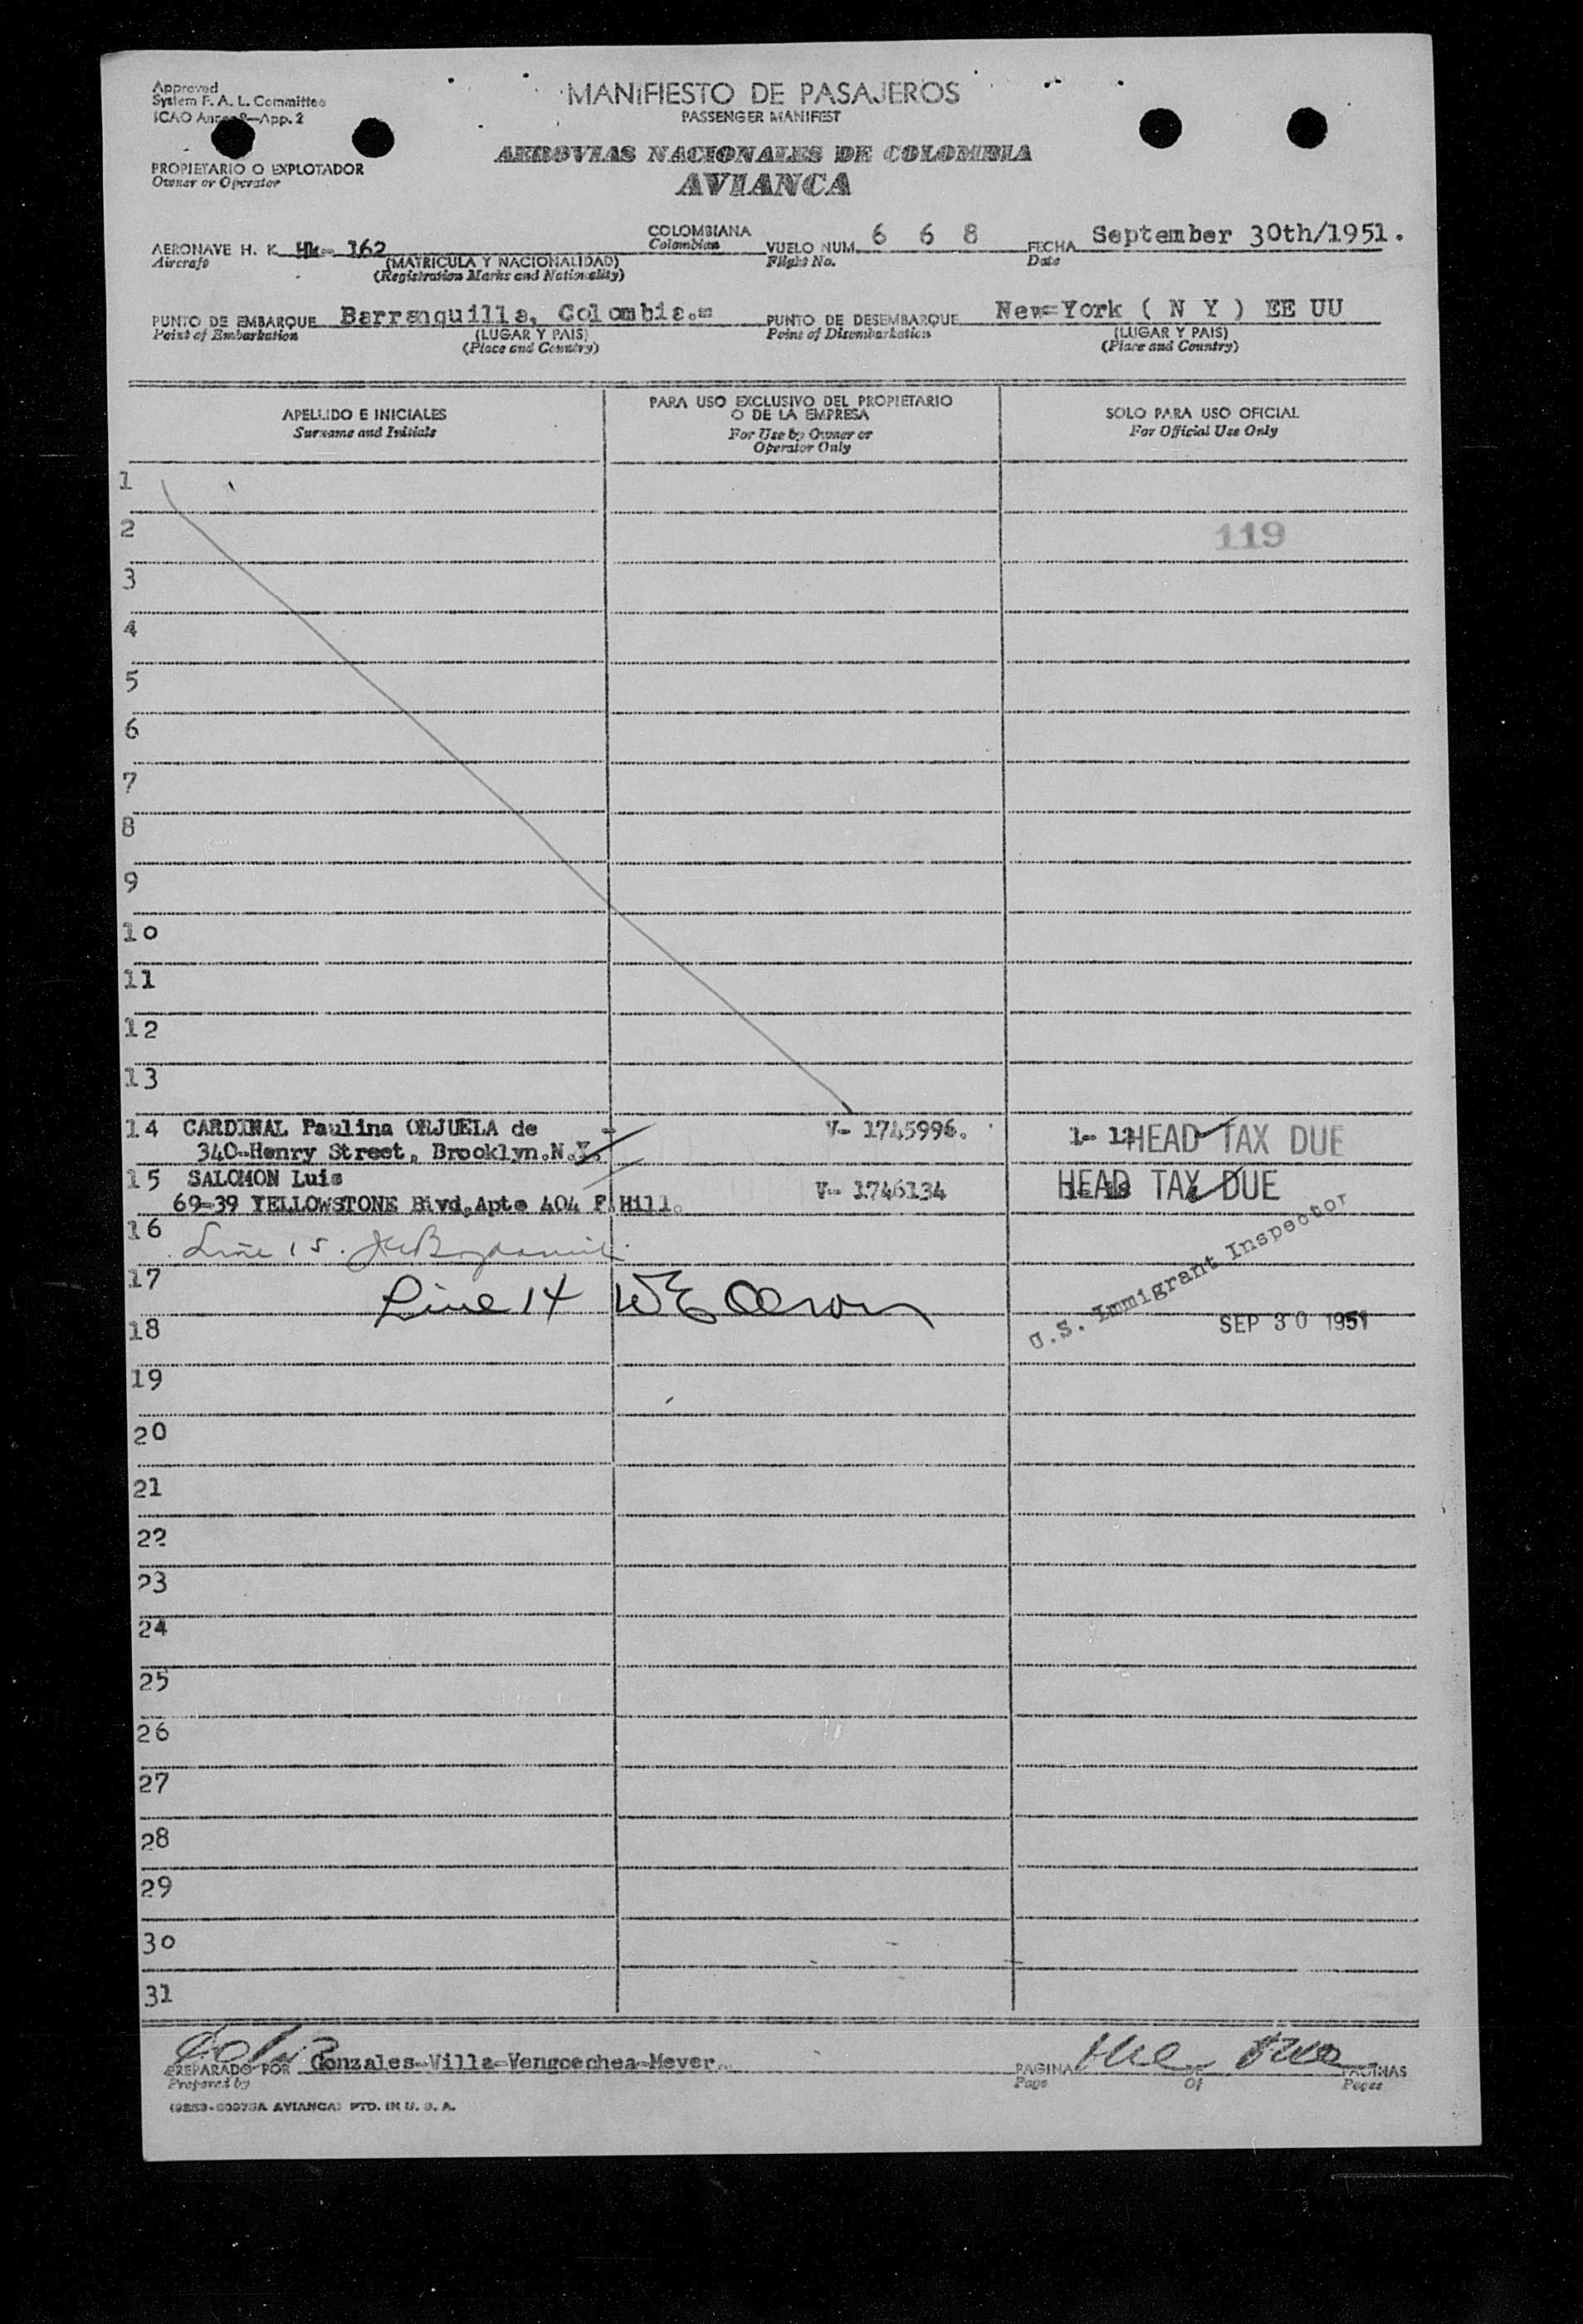 Approved
System F. A. L. Committee
ICAO Annex 9—App. 2
MANIFIESTO DE PASAJEROS
PASSENGER MANIFEST
PROPIETARIO O EXPLOTADOR
Owner or Operator
AEROVIAS NACIONALES DE COLOMBIA
AVIANCA
AERONAVE H. K. Hk- 162 COLOMBIANA VUELO NUM. 6 6 8 FECHA September 30th/1951.
Aircraft (MATRICULA Y NACIONALIDAD) Colombian Flight No. Date
(Registration Marks and Nationality)
PUNTO DE EMBARQUE Barranquilla, Colombia.= PUNTO DE DESEMBARQUE New=York ( N Y ) EE UU
Point of Embarkation (LUGAR Y PAIS) Point of Disembarkation (LUGAR Y PAIS)
(Place and Country) (Place and Country)
APELLIDO E INICIALES
Surname and Initials
PARA USO EXCLUSIVO DEL PROPIETARIO
O DE LA EMPRESA
For Use by Owner or
Operator Only
SOLO PARA USO OFICIAL
For Official Use Only
1
2 119
3
4
5
6
7
8
9
10
11
12
13
14 CARDINAL Paulina ORJUELA de V- 1745996. HEAD TAX DUE
340-Henry Street, Brooklyn.N.Y.
15 SALOMON Luis V- 1746134 HEAD TAX DUE
69=39 YELLOWSTONE Blvd,Apte 404 F.Hill.
16 Line 15.
17 Line 14
U.S. Immigrant Inspector
18 SEP 30 1951
19
20
21
22
23
24
25
26
27
28
29
30
31
PREPARADO POR Gonzales-Villa-Vengoechea-Meyer. PAGINA PAGINAS
Prepared by Page Of Pages
AVIANCA) PTD. IN U. S. A.